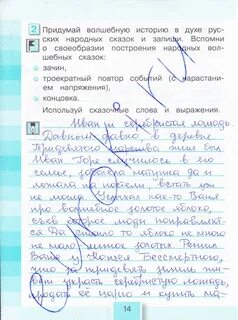 2 Придумай волшебную историю в духе рус-
ских народных сказок и запиши. Вспомни
о своеобразии построения народных вол-
шебных сказок:
— зачин,
— троекратный повтор событий (с нарастани-
ем напряжения),
— концовка.
Используй сказочные слова и выражения.
Иван и серебристая лошадь
Давным давно, в деревне
жил был
Иван Горе случилось в его
семье, заболела матушка да и
лежала на постели, встать уж
не могла Услыхал как-то Ваня
про волшебное золотое яблоко,
съев которое люди поправляют-
ся. Да стоило то яблоко не много
не мало, мешок золотых. Решил
Ваня у Кощея Бессмертного,
что за тридевять земель жи-
вёт украсть серебристую лошадь,
продать её царю и купить ма-
14